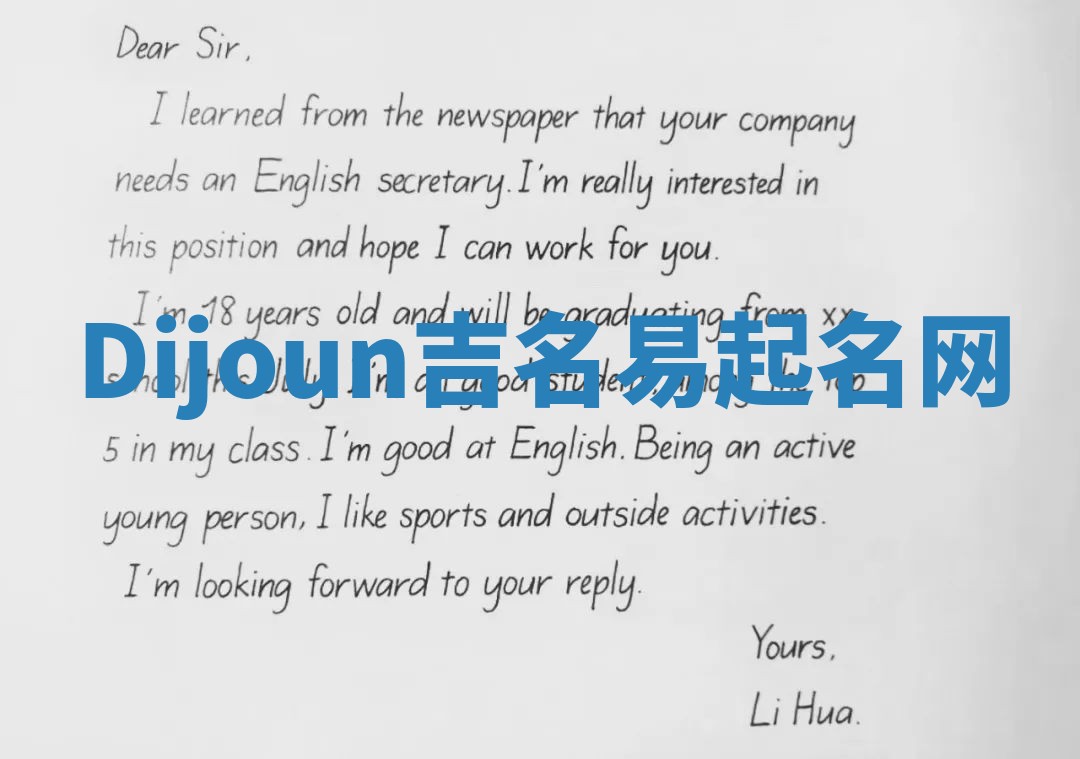 Dear Sir,
I learned from the newspaper that your company
needs an English secretary. I'm really interested in
this position and hope I can work for you.
I'm 18 years old and will be graduating from xx
Dijoun吉名易起名网
school this July. I'm a good student, among the top
5 in my class. I'm good at English. Being an active
young person, I like sports and outside activities.
I'm looking forward to your reply.
Yours,
Li Hua.